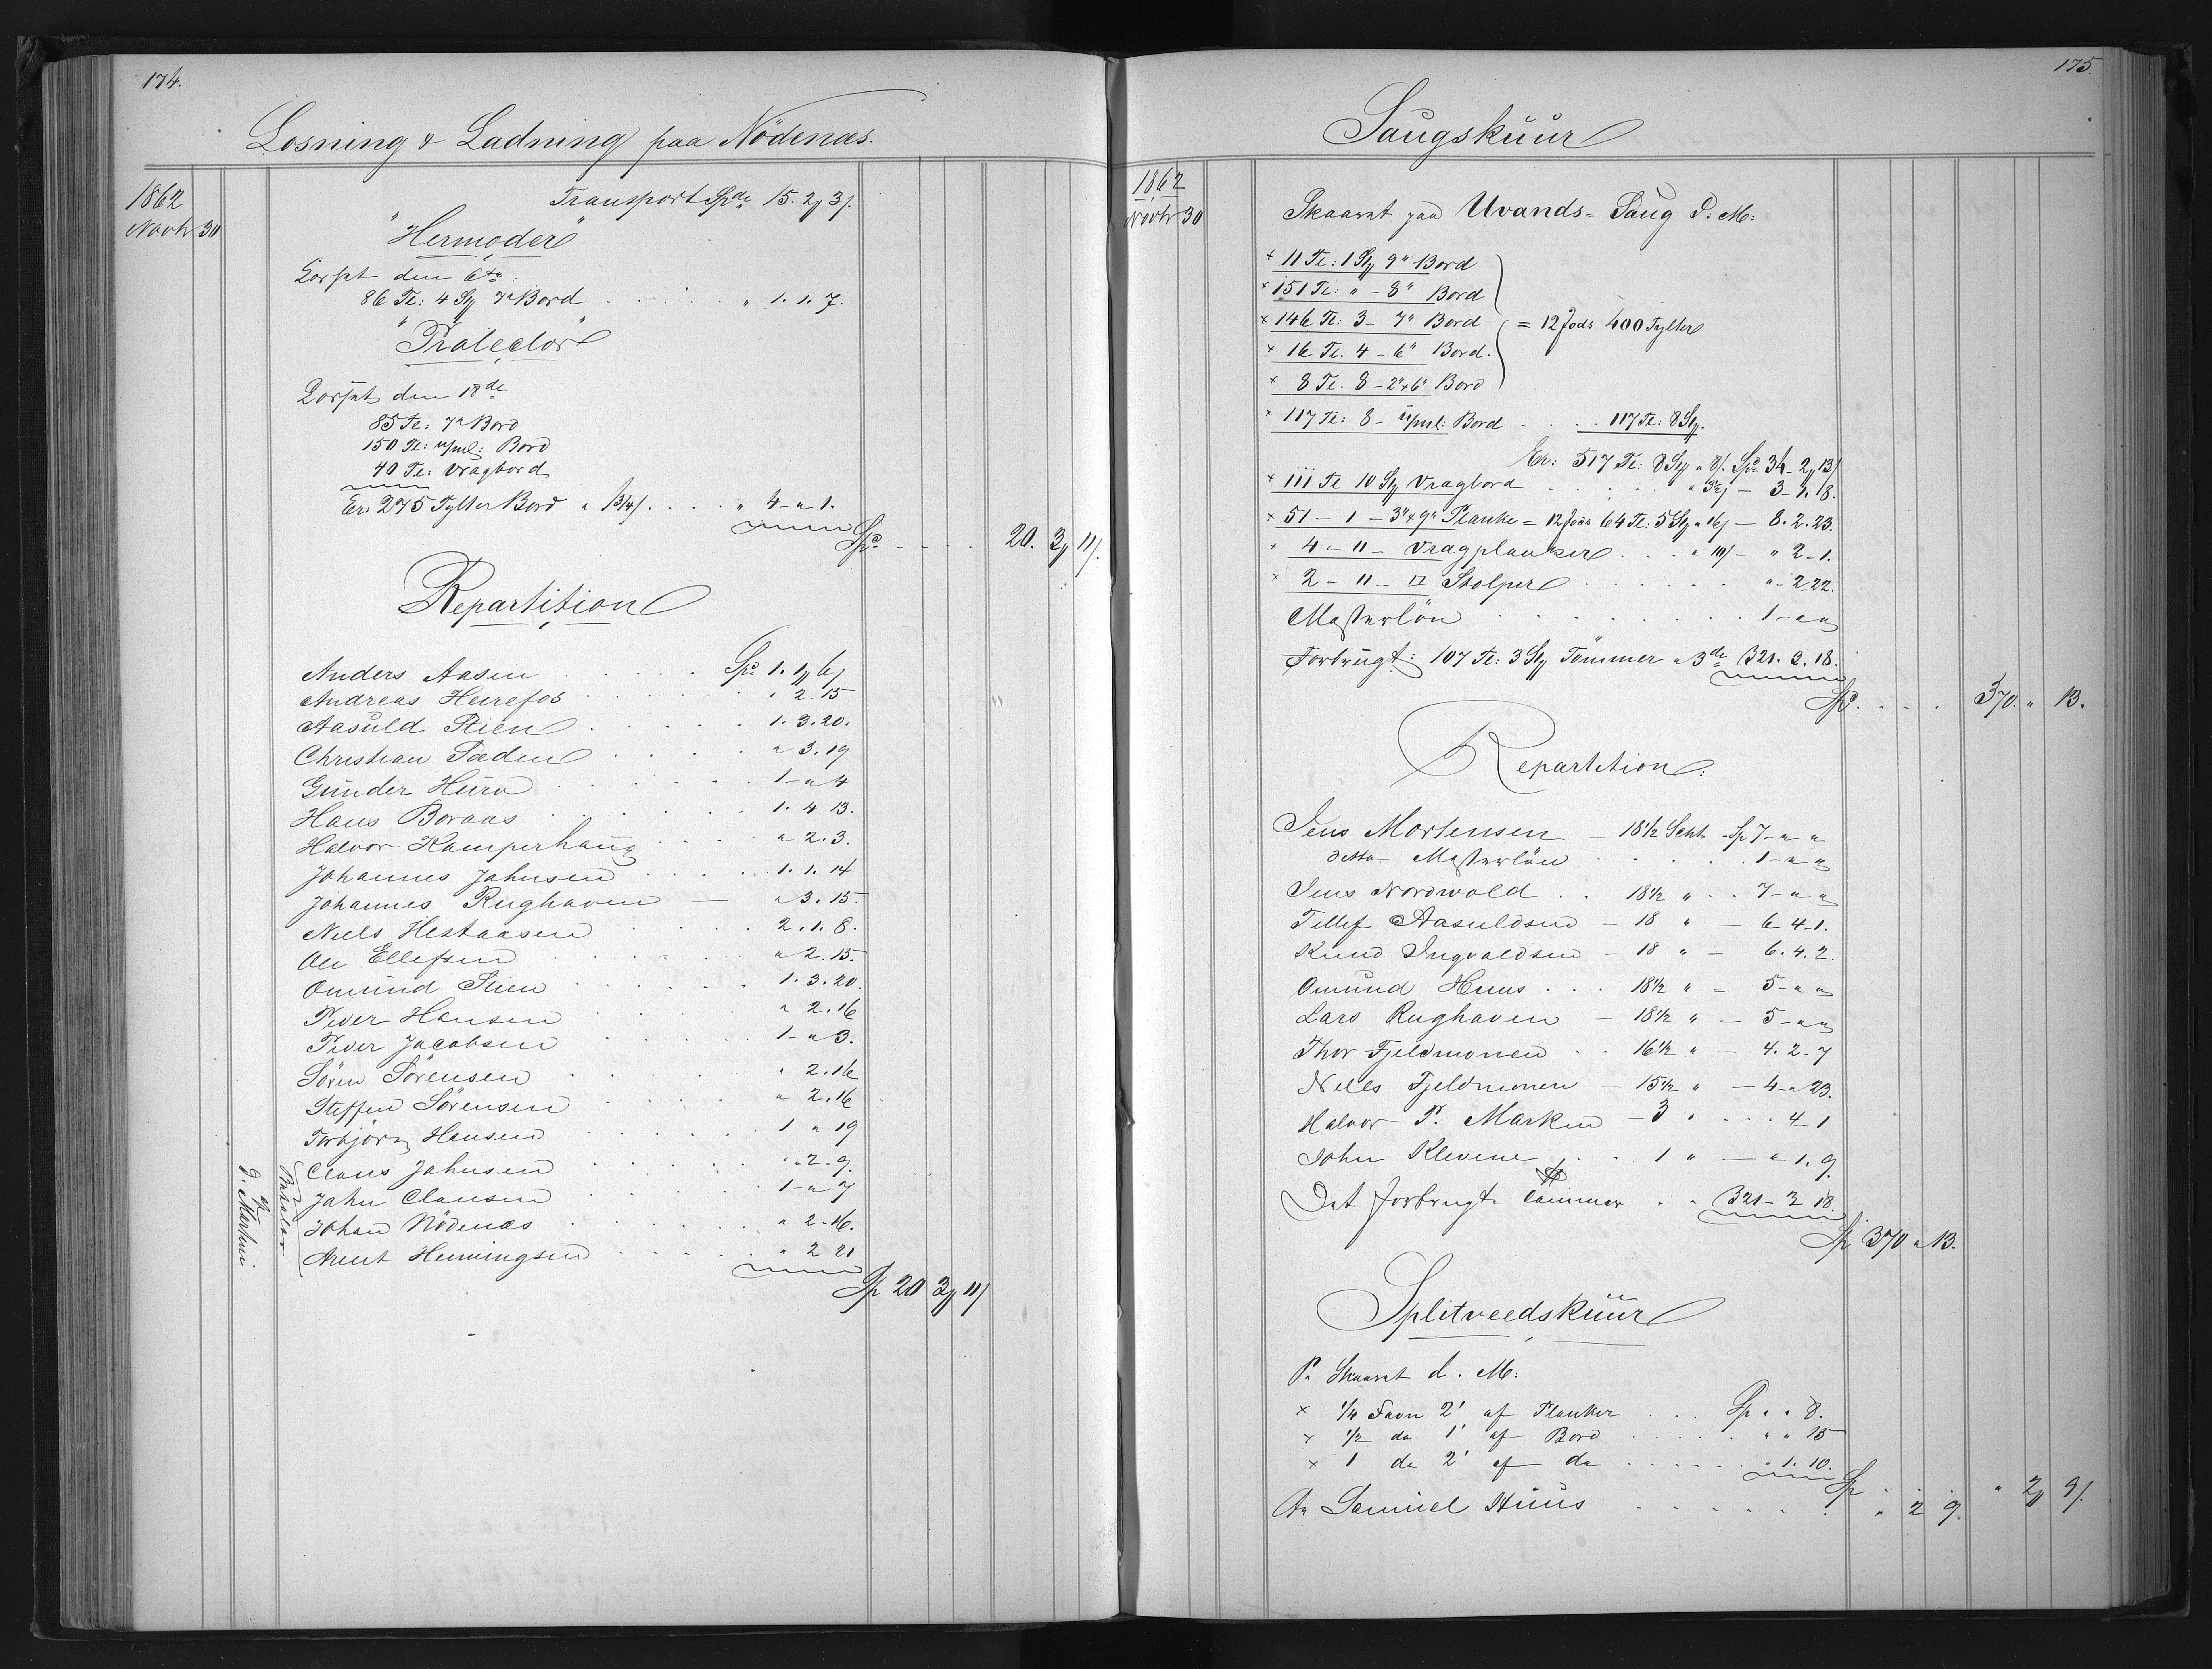 174.
Losning & Ladning paa Nödenæs.
1862
Novbr 30
Transport Spd. 15. 2 3
"Hermoder"
Losset den 6te
86 Tl: 4 St 7" Bord . . . " 1. 1. 7.
Losset den 18de
85 Tl: 7" Bord
150 Tl: upul: Bord
40 Tl: Vragbord
Er: 275 Tylter Bord a 13/4 . . . " 4 - " 1.
Spd. . . . . 20. 3 11
Repartition
Anders Aasen . . . Spd. 1. 1 6
Andreas Heirefos . . . " 2. 15
Aasuld Stien . . . 1. 3. 20.
Christian Sæden . . . " 3. 19
Gunder Huro . . . 1 - " 4
Hans Boraas . . . 1. 4 13.
Halvor Kamperhaug . . . " 2. 3.
Johannes Jahnsen . . . 1. 1. 14
Johannes Rughaven — " 3. 15.
Niels Hestaasen . . . 2. 1. 8.
Ole Ellefsen . . . " 2. 15.
Omund Stien . . . 1. 3. 20.
Peder Hansen . . . " 2. 16
Peder Jacobsen . . . 1 - " 3.
Sören Sörensen . . . " 2. 16
Steffen Sörensen . . . " 2. 16
Torbjörn Hansen . . . 1 " 19
Claus Jahnsen . . . " 2 - 9.
Jahn Clausen . . . 1 - " 7
Johan Nödenæs . . . " 2 - 16.
Arent Henningsen . . . " 2 21
Betaler
J. Martini
Sp 20 3 11
175.
Saugskuur
1862
Novbr 30
Skaaret paa Uvands-Saug d. M:
+ 11 Tl: 1 St 9" Bord
+ 151 Tl: " - 8" Bord
+ 146 Tl: 3 - 7" Bord = 12 fods 400 Tylter
+ 16 Tl. 4 - 6" Bord.
+ 8 Tl. 8 - 2"x6" Bord
+ 117 Tl: 8 - upul: Bord . . . 117 Tl: 8 St.
Er: 517 Tl: 8 St a 8 Spd 34 - 2 13
+ 111 Tl 10 St Vragbord . . . a 3½ - 3 - 1. 18.
+ 51 - 1 - 3"x9" Planke = 12 fods 64 Tl: 5 St a 16 - 8. 2. 23.
+ 4 - 11 - Vragplanker . . . a 10 - " 2 - 1.
+ 2 - 11 - □ Stolper . . . " - 2 22.
Mesterlön . . . 1 - " "
Forbrugt: 107 Tl: 3 St Tömmer a 3de 321. 3. 18.
Spd. . . . 370. " 13.
Repartition:
Jens Mortensen - 18½ Scht - Sp 7 - " "
detto Mesterlön . . . 1 - " "
Jens Nordvold . . 18½ " . . 7 - " "
Tellef Aasuldsen - 18 " - 6 4 - 1.
Knud Ingvaldsen - 18 " - 6. 4. 2.
Omund Huus . . . 18½ " - 5 - " "
Lars Rughaven - 18½ " - 5 - " "
Thor Fjeldmonen . . 16½ " - 4. 2 - 7
Niels Fjeldmonen - 15½ " - 4 - " 23.
Halvor P. Marken - 3 " . . . 4 1
John Klevene . . 1 " - " 1. 9.
Det forbrugte Tömmer . . 321 - 3 18.
Sp 370 " 13.
Splitveedskuur
Pr Skaaret d. M:
× ¼ Favn 2' af Planker . . . Sp " " 8.
× ½ do 1' af Bord . . . " " 15
× 1 do 2' af do . . . " 1. 10.
Sp . . . " 2 9
An Samuel Huus . . . " 2 9.